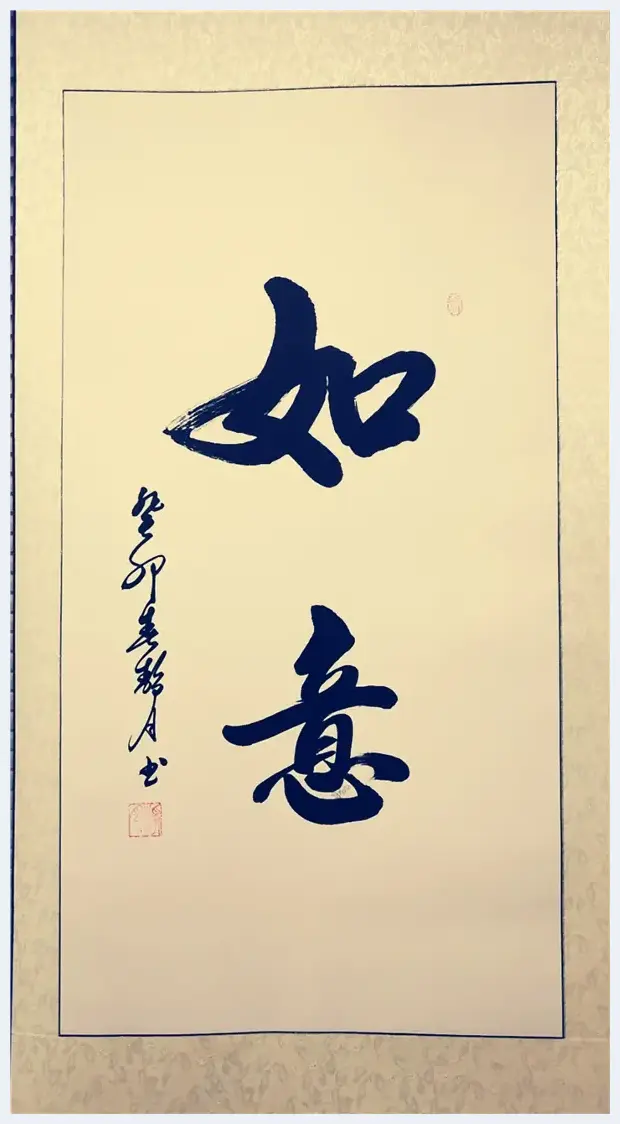 如意
癸卯春静月书